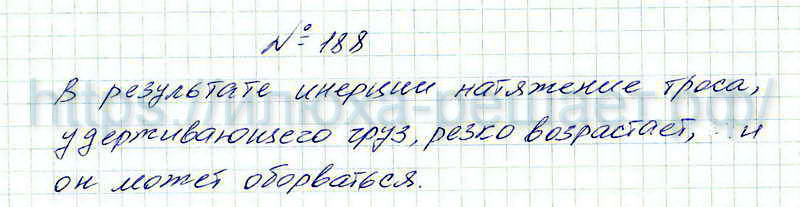 № 188
В результате инерции натяжение троса,
удерживающего груз, резко возрастает, и
он может оборваться.